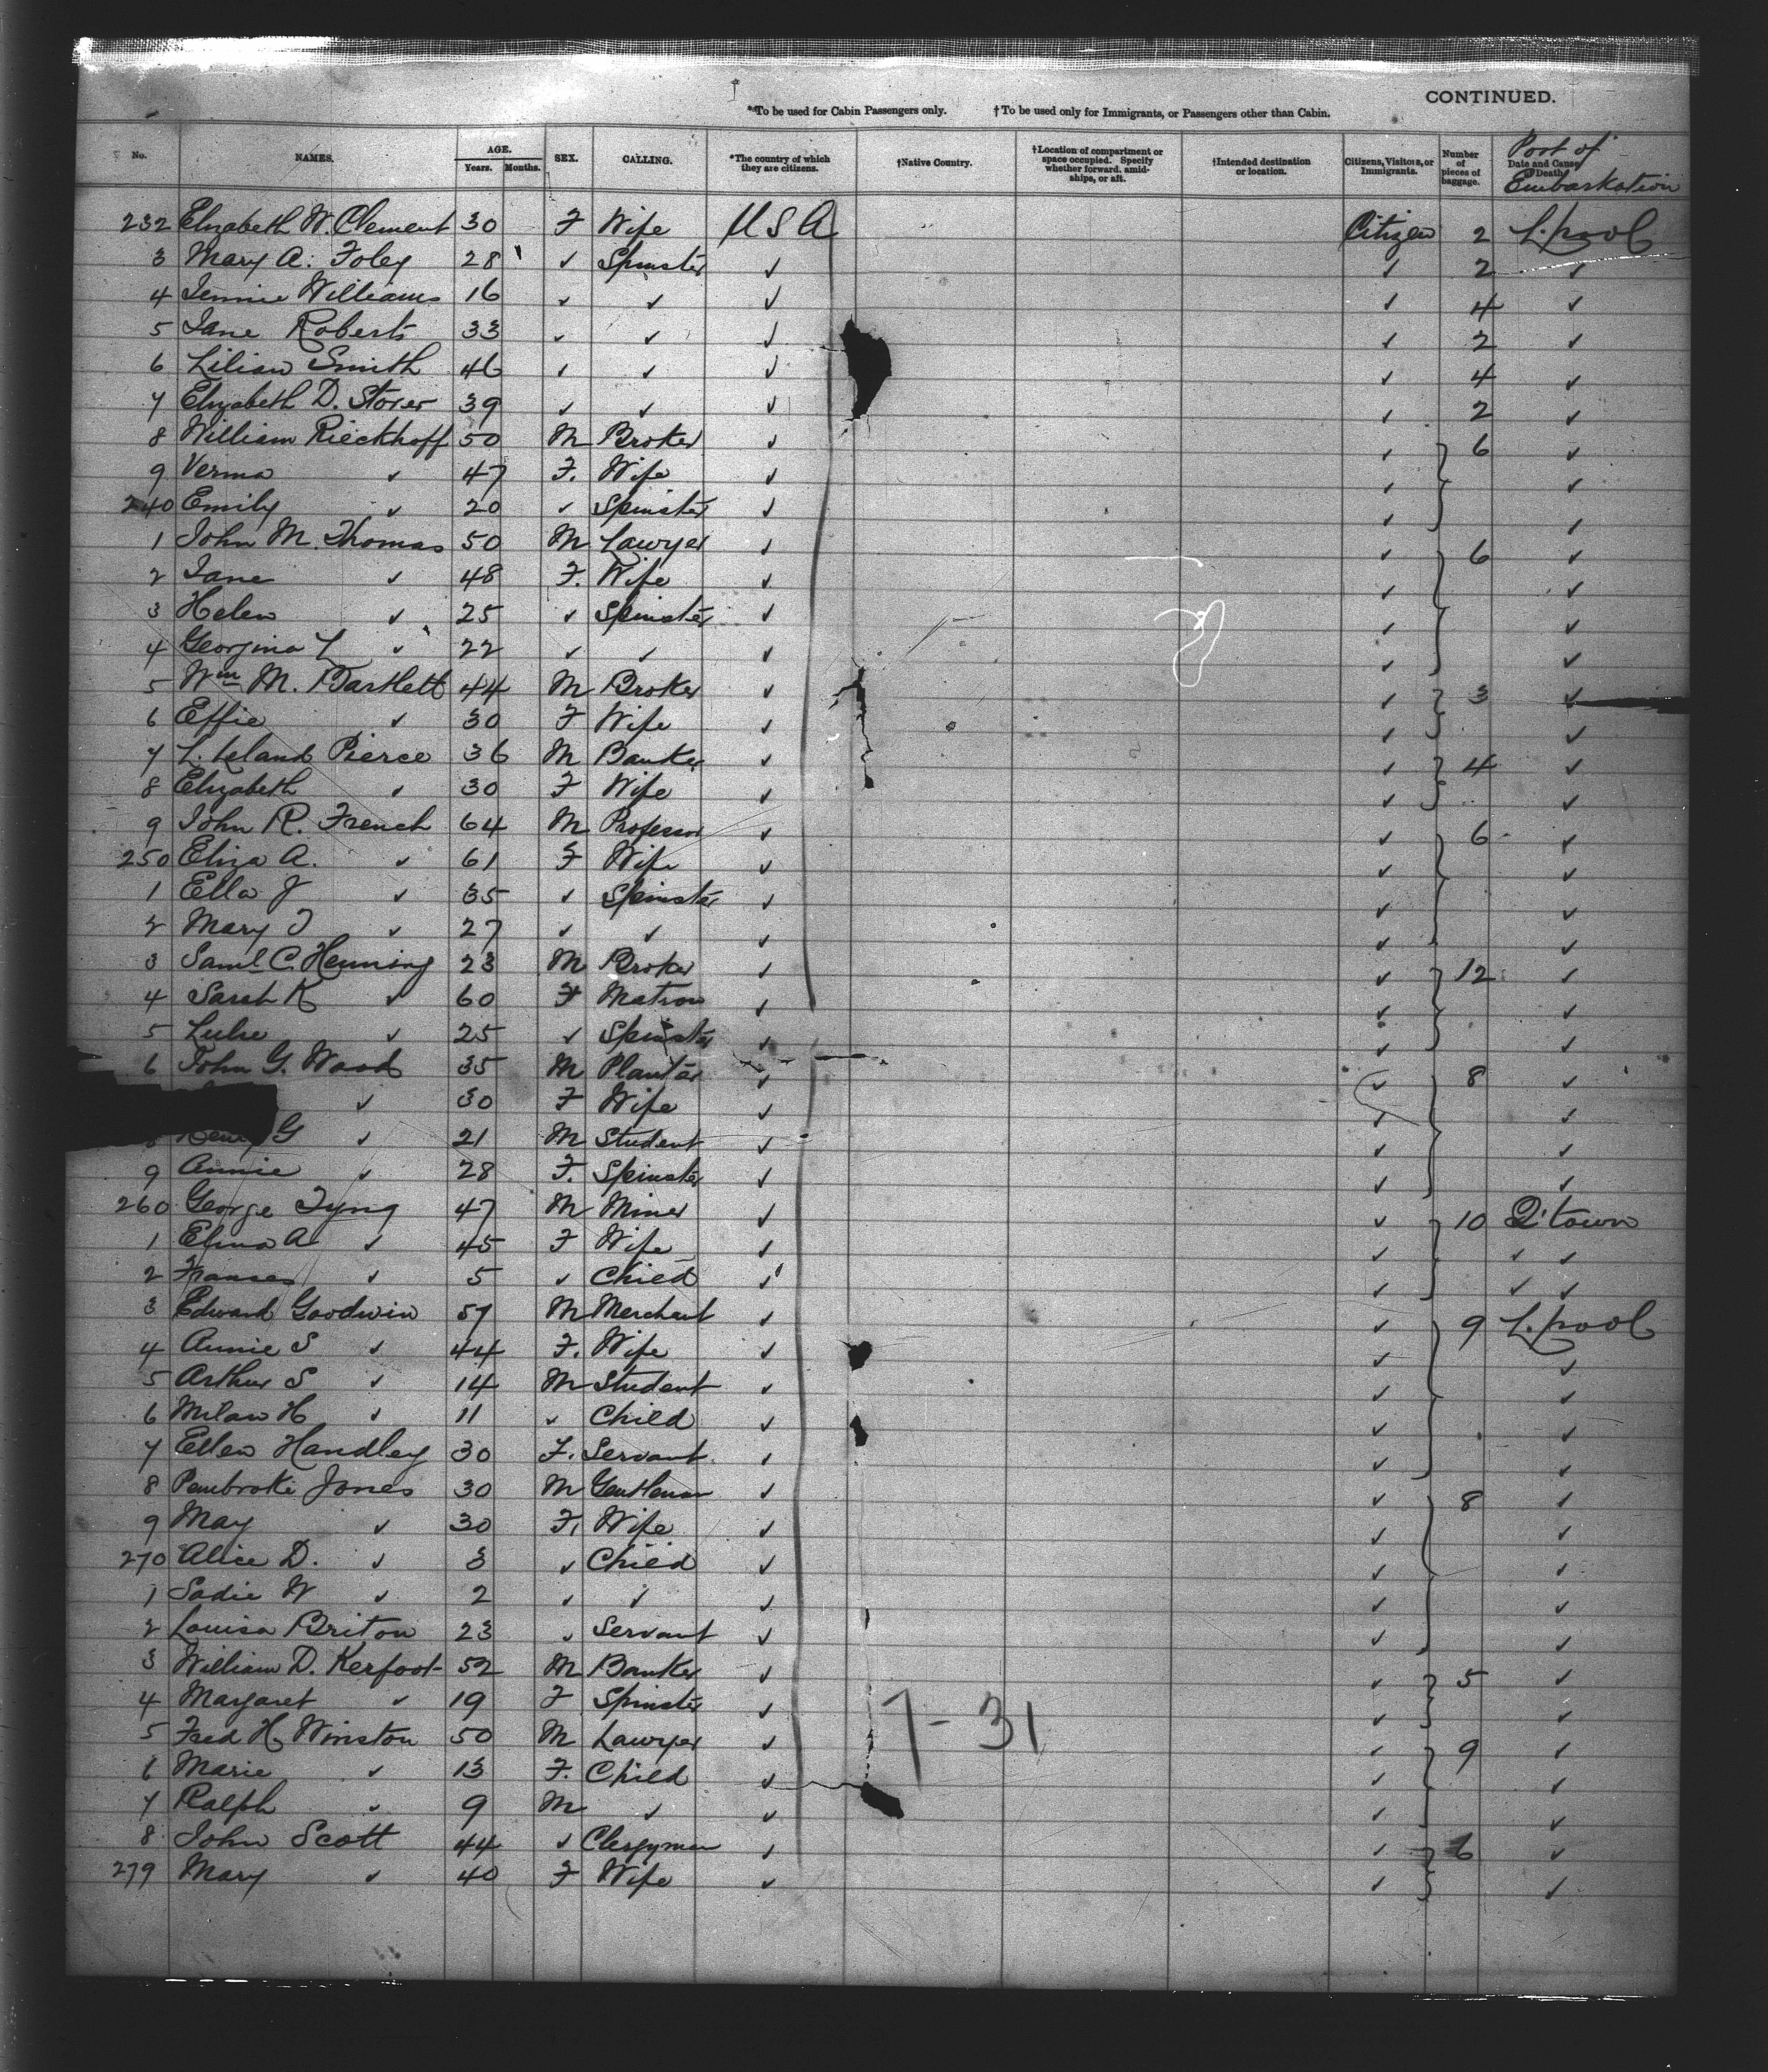 CONTINUED.
*To be used for Cabin Passengers only. †To be used only for Immigrants, or Passengers other than Cabin.
No. NAMES. AGE. Years. Months. SEX. CALLING. *The country of which they are citizens. †Native Country. †Location of compartment or space occupied. Specify whether forward, amidships, or aft. †Intended destination or location. Citizens, Visitors, or Immigrants. Number of pieces of baggage. Date and Cause of Death. Port of Embarkation
232 Elizabeth W. Clement 30 F Wife U S A Citizen 2 L.pool
3 Mary A. Foley 28 ✓ Spinster ✓ ✓ 2 ✓
4 Jennie Williams 16 ✓ ✓ ✓ ✓ 4 ✓
5 Jane Roberts 33 ✓ ✓ ✓ ✓ 2 ✓
6 Lilian Smith 46 ✓ ✓ ✓ ✓ 4 ✓
7 Elizabeth D. Storer 39 ✓ ✓ ✓ ✓ 2 ✓
8 William Rieckhoff 50 M Broker ✓ ✓ 6 ✓
9 Verma ✓ 47 F. Wife ✓ ✓ ✓
240 Emily ✓ 20 ✓ Spinster ✓ ✓ ✓
1 John M. Thomas 50 M Lawyer ✓ ✓ 6 ✓
2 Jane ✓ 48 F. Wife ✓ ✓ ✓
3 Helen ✓ 25 ✓ Spinster ✓ ✓ ✓
4 Georgina L ✓ 22 ✓ ✓ ✓ ✓ ✓
5 Wm M. Bartlett 44 M Broker ✓ ✓ 3 ✓
6 Effie ✓ 30 F Wife ✓ ✓ ✓
7 L. Leland Pierce 36 M Banker ✓ ✓ 4 ✓
8 Elizabeth ✓ 30 F Wife ✓ ✓ ✓
9 John R. French 64 M Professor ✓ ✓ 6 ✓
250 Eliza A. ✓ 61 F Wife ✓ ✓ ✓
1 Ella J ✓ 35 ✓ Spinster ✓ ✓ ✓
2 Mary J ✓ 27 ✓ ✓ ✓ ✓ ✓
3 Saml C. Henning 23 M Broker ✓ ✓ 12 ✓
4 Sarah K ✓ 60 F Matron ✓ ✓ ✓
5 Lulie ✓ 25 ✓ Spinster ✓ ✓ ✓
6 John G. Wood 35 M Planter ✓ ✓ 8 ✓
✓ 30 F Wife ✓ ✓ ✓
8 Henry G ✓ 21 M Student ✓ ✓ ✓
9 Annie ✓ 28 F. Spinster ✓ ✓ ✓
260 George Tyng 47 M Miner ✓ ✓ 10 Q'town
1 Elena A ✓ 45 F Wife ✓ ✓ ✓ ✓
2 Frances ✓ 5 ✓ Child ✓ ✓ ✓ ✓
3 Edward Goodwin 57 M Merchant ✓ ✓ 9 L.pool
4 Annie S ✓ 44 F. Wife ✓ ✓ ✓
5 Arthur S ✓ 14 M Student ✓ ✓ ✓
6 Milan H ✓ 11 ✓ Child ✓ ✓ ✓
7 Ellen Handley 30 F. Servant ✓ ✓ ✓
8 Pembroke Jones 30 M Gentleman ✓ ✓ 8 ✓
9 May ✓ 30 F. Wife ✓ ✓ ✓
270 Alice D. ✓ 3 ✓ Child ✓ ✓ ✓
1 Sadie W ✓ 2 ✓ ✓ ✓ ✓ ✓
2 Louisa Briton 23 ✓ Servant ✓ ✓ ✓
3 William D. Kerfoot 52 M Banker ✓ ✓ 5 ✓
4 Margaret ✓ 19 F Spinster ✓ ✓ ✓
5 Fred H. Winston 50 M Lawyer ✓ ✓ 9 ✓
6 Marie ✓ 13 F. Child ✓ ✓ ✓
7 Ralph ✓ 9 M ✓ ✓ ✓ ✓
8 John Scott 44 ✓ Clergyman ✓ ✓ 6 ✓
279 Mary ✓ 40 F Wife ✓ ✓ ✓
7-31